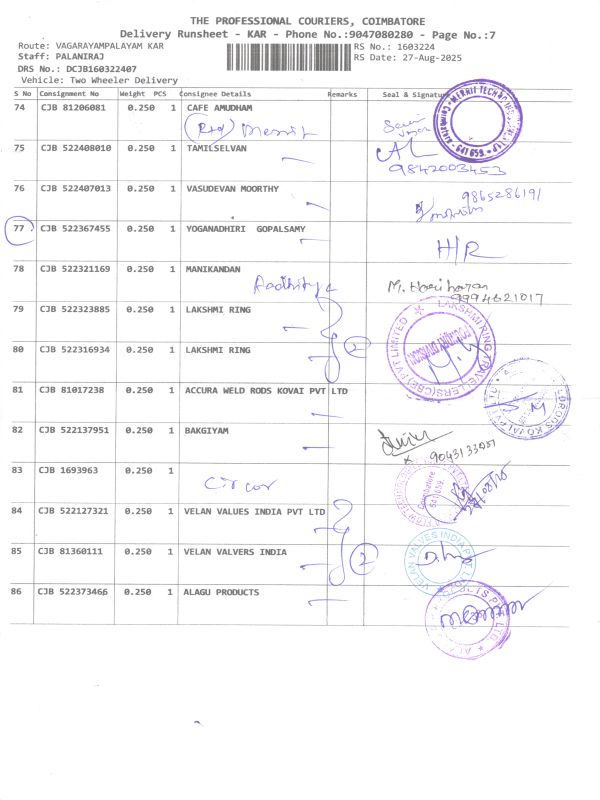 THE PROFESSIONAL COURIERS, COIMBATORE
Delivery Runsheet - KAR - Phone No.:9047080280 - Page No.:7
Route: VAGARAYAMPALAYAM KAR RS No.: 1603224
Staff: PALANIRAJ RS Date: 27-Aug-2025
DRS No.: DCJB160322407
Vehicle: Two Wheeler Delivery
S No Consignment No Weight PCS Consignee Details Remarks Seal & Signature
74 CJB 81206081 0.250 1 CAFE AMUDHAM
75 CJB 522408010 0.250 1 TAMILSELVAN
9842003453
76 CJB 522407013 0.250 1 VASUDEVAN MOORTHY
9865286191
77 CJB 522367455 0.250 1 YOGANADHIRI GOPALSAMY
H/R
78 CJB 522321169 0.250 1 MANIKANDAN
Aadhitya M. Hariharan
9994621017
79 CJB 522323885 0.250 1 LAKSHMI RING
80 CJB 522316934 0.250 1 LAKSHMI RING 2
81 CJB 81017238 0.250 1 ACCURA WELD RODS KOVAI PVT LTD
82 CJB 522137951 0.250 1 BAKGIYAM
83 CJB 1693963 0.250 1
Circor
84 CJB 522127321 0.250 1 VELAN VALUES INDIA PVT LTD
85 CJB 81360111 0.250 1 VELAN VALVERS INDIA 2
VELAN VALVES INDIA PVT
86 CJB 522373466 0.250 1 ALAGU PRODUCTS